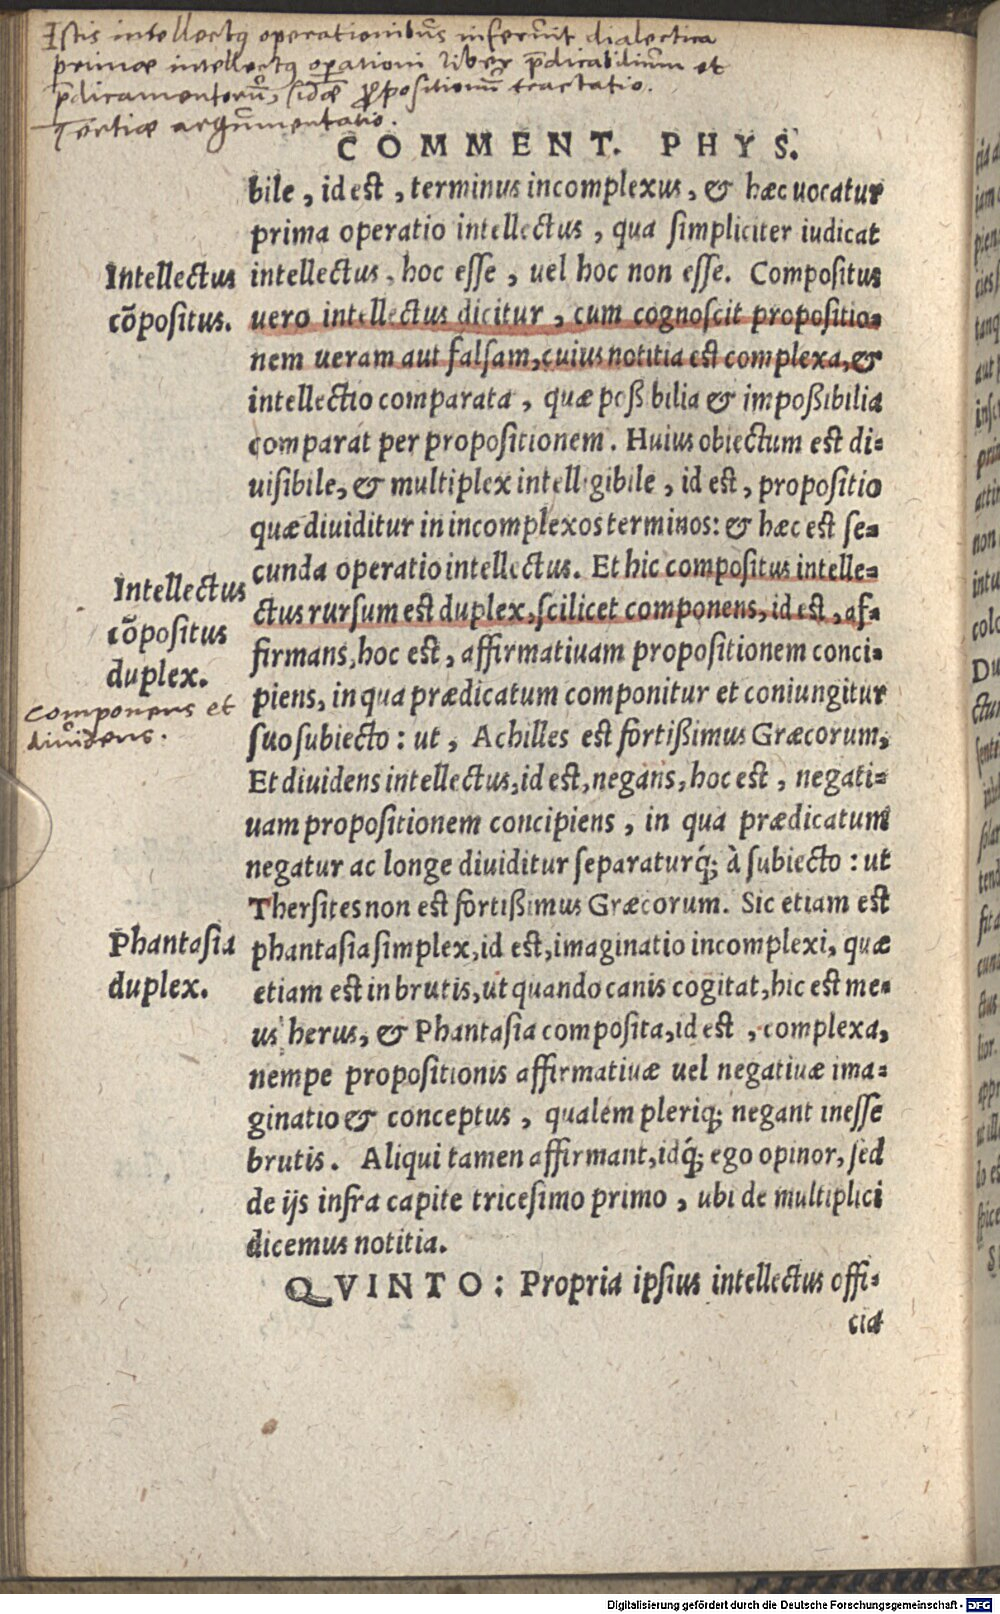 Istis intellectꝰ operationibus inseruit dialectica
primæ intellectꝰ operationi liber p̄dicabilium et
p̄dicamentorū, propositionū tractatio.
Tertiæ argumentatio.
COMMENT. PHYS.
bile, id est, terminus incomplexus, & hæc uocatur
prima operatio intellectus, qua simpliciter iudicat
Intellectus
cōpositus.
intellectus, hoc esse, uel hoc non esse. Compositus
uero intellectus dicitur, cum cognoscit propositio=
nem ueram aut falsam, cuius notitia est complexa, &
intellectio comparata, quæ poßibilia & impoßibilia
comparat per propositionem. Huius obiectum est di=
uisibile, & multiplex intelligibile, id est, propositio
quæ diuiditur in incomplexos terminos: & hæc est se=
Intellectus
cōpositus
duplex.
Componens et
diuidens.
cunda operatio intellectus. Et hic compositus intelle=
ctus rursum est duplex, scilicet componens, id est, af=
firmans, hoc est, affirmatiuam propositionem conci=
piens, in qua prædicatum componitur et coniungitur
suo subiecto: ut, Achilles est fortißimus Græcorum,
Et diuidens intellectus, id est, negans, hoc est, negati=
uam propositionem concipiens, in qua prædicatum
negatur ac longe diuiditur separaturq́; à subiecto: ut
Thersites non est fortißimus Græcorum. Sic etiam est
Phantasia
duplex.
phantasia simplex, id est, imaginatio incomplexi, quæ
etiam est in brutis, ut quando canis cogitat, hic est me=
us herus, & Phantasia composita, id est, complexa,
nempe propositionis affirmatiuæ uel negatiuæ ima=
ginatio & conceptus, qualem pleriq; negant inesse
brutis. Aliqui tamen affirmant, idq́; ego opinor, sed
de ijs infra capite tricesimo primo, ubi de multiplici
dicemus notitia.
QVINTO: Propria ipsius intellectus offi=
cia
Digitalisierung gefördert durch die Deutsche Forschungsgemeinschaft - DFG